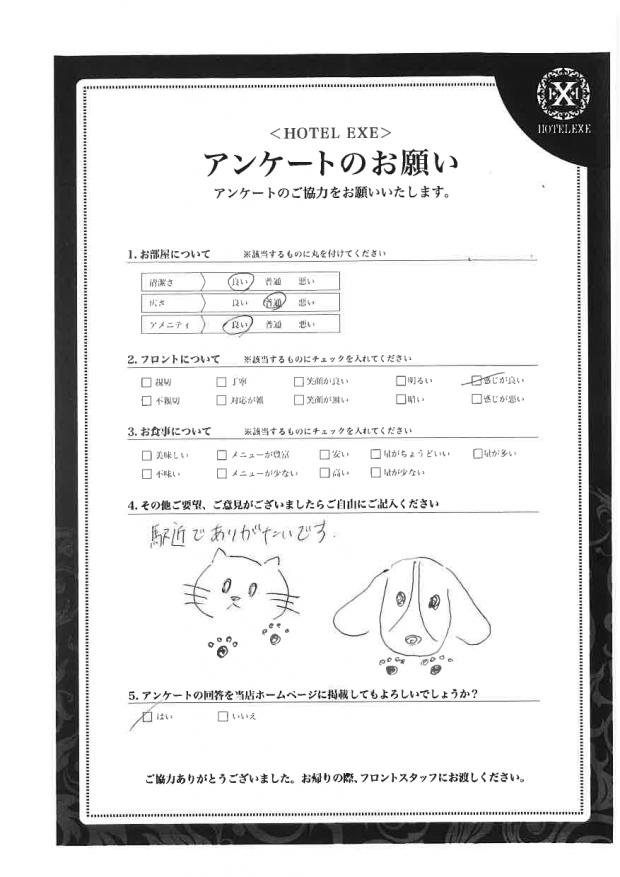 HOTEL EXE
＜HOTEL EXE＞
アンケートのお願い
アンケートのご協力をお願いいたします。
1. お部屋について ※該当するものに丸を付けてください
清潔さ 良い 普通 悪い
広さ 良い 普通 悪い
アメニティ 良い 普通 悪い
2. フロントについて ※該当するものにチェックを入れてください
□親切 □丁寧 □笑顔が良い □明るい □感じが良い
□不親切 □対応が雑 □笑顔が無い □暗い □感じが悪い
3. お食事について ※該当するものにチェックを入れてください
□美味しい □メニューが豊富 □安い □量がちょうどいい □量が多い
□不味い □メニューが少ない □高い □量が少ない
4. その他ご要望、ご意見がございましたらご自由にご記入ください
駅近でありがたいです.
5. アンケートの回答を当店ホームページに掲載してもよろしいでしょうか？
□はい □いいえ
ご協力ありがとうございました。お帰りの際、フロントスタッフにお渡しください。